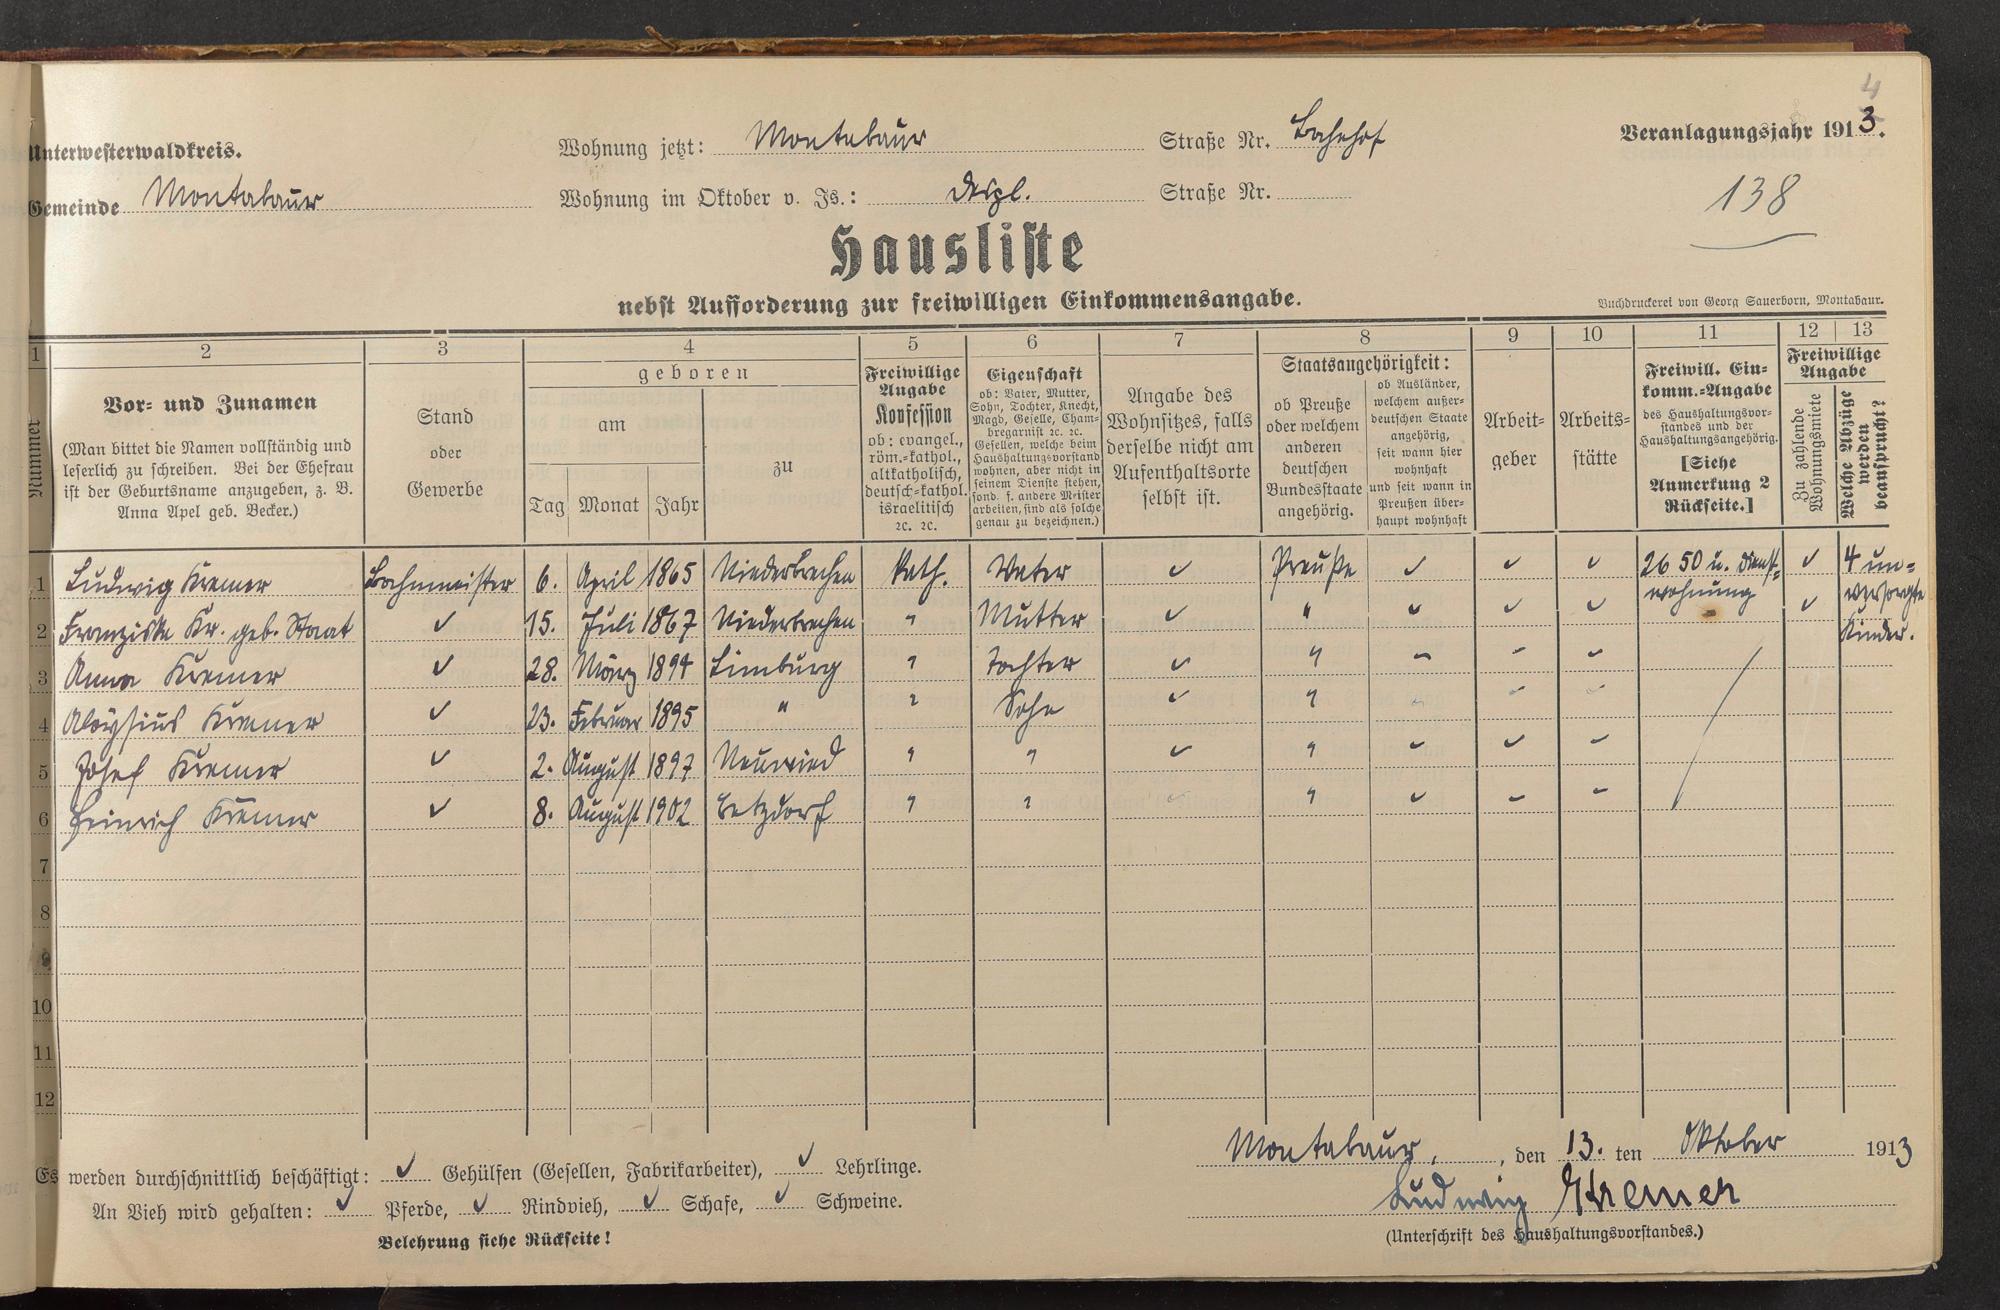 4
Unterwesterwaldkreis.
Wohnung jetzt: Montabaur Straße Nr. Bahnhof
Veranlagungsjahr 1913.
Gemeinde Montabaur
Wohnung im Oktober v. Js.: desgl. Straße Nr.
138
Hausliste
nebst Aufforderung zur freiwilligen Einkommensangabe.
Buchdruckerei von Georg Sauerborn, Montabaur.
1 2 3 4 5 6 7 8 9 10 11 12 13
Nummer
Vor- und Zunamen
(Man bittet die Namen vollständig und
leserlich zu schreiben. Bei der Ehefrau
ist der Geburtsname anzugeben, z. B.
Anna Apel geb. Becker.)
Stand
oder
Gewerbe
geboren
am
Tag Monat Jahr
zu
Freiwillige
Angabe
Konfession
ob: evangel.,
röm.-kathol.,
altkatholisch,
deutsch-kathol.
israelitisch
ꝛc. ꝛc.
Eigenschaft
ob: Vater, Mutter,
Sohn, Tochter, Knecht,
Magd, Geselle, Cham-
bregarnist ꝛc. ꝛc.
Gesellen, welche beim
Haushaltungsvorstand
wohnen, aber nicht in
seinem Dienste stehen,
sond. f. andere Meister
arbeiten, sind als solche
genau zu bezeichnen.)
Angabe des
Wohnsitzes, falls
derselbe nicht am
Aufenthaltsorte
selbst ist.
Staatsangehörigkeit:
ob Preuße
oder welchem
anderen
deutschen
Bundesstaate
angehörig.
ob Ausländer,
welchem außer-
deutschen Staate
angehörig,
seit wann hier
wohnhaft
und seit wann in
Preußen über-
haupt wohnhaft
Arbeit-
geber
Arbeits-
stätte
Freiwill. Ein-
komm.-Angabe
des Haushaltungsvor-
standes und der
Haushaltungsangehörig.
[Siehe
Anmerkung 2
Rückseite.]
Freiwillige
Angabe
Zu zahlende
Wohnungsmiete
Welche Abzüge
werden
beansprucht?
1 Ludwig Kremer Bahnmeister 6. April 1865 Niederbrechen Kath. Vater ✓ Preuße ✓ ✓ ✓ 2650 u. Dienst- ✓ 4 un-
wohnung versorgte
2 Franziska Kr. geb. Staat ✓ 15. Juli 1867 Niederbrechen " Mutter ✓ " ✓ ✓ ✓ ✓ Kinder.
3 Anna Kremer ✓ 28. März 1894 Limburg " Tochter ✓ " ✓ ✓ ✓
4 Aloysius Kremer ✓ 23. Februar 1895 " " Sohn ✓ " ✓ ✓ ✓
5 Josef Kremer ✓ 2. August 1897 Neuwied " " ✓ " ✓ ✓ ✓
6 Heinrich Kremer ✓ 8. August 1902 Betzdorf " " ✓ " ✓ ✓ ✓
7
8
9
10
11
12
Montabaur, den 13. ten Oktober 1913
Es werden durchschnittlich beschäftigt: ✓ Gehülfen (Gesellen, Fabrikarbeiter), ✓ Lehrlinge.
Ludwig Kremer
An Vieh wird gehalten: ✓ Pferde, ✓ Rindvieh, ✓ Schafe, ✓ Schweine.
(Unterschrift des Haushaltungsvorstandes.)
Belehrung siehe Rückseite!